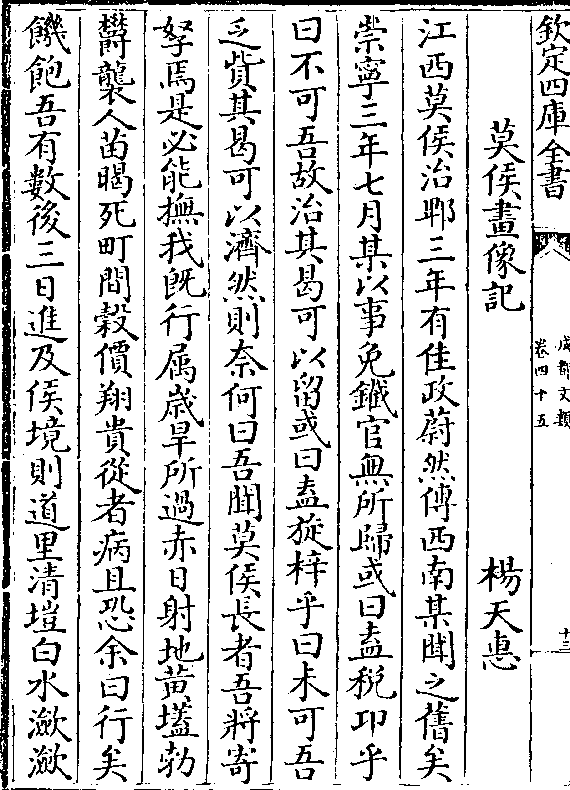 欽定四庫全書
成都文類
卷四十五
十三
莫侯畫像記
楊天惠
江西莫侯治郫三年有佳政蔚然傳西南某聞之舊矣
崇寧三年七月某以事免鐵官無所歸或曰盍稅卭乎
曰不可吾故治其曷可以留或曰盍旋梓乎曰未可吾
乏貲其曷可以濟然則奈何曰吾聞莫侯長者吾將寄
孥焉是必能撫我既行屬歳旱所過赤日射地黃壒勃
欝襲人苗暍死町間穀價翔貴從者病且恐余曰行矣
饑飽吾有數後三日進及侯境則道里清塏白水瀲瀲